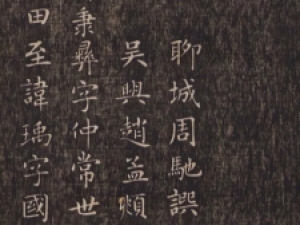 聊城周馳譔
吴興趙孟頫
秉彝字仲常世
田至諱瑀字國